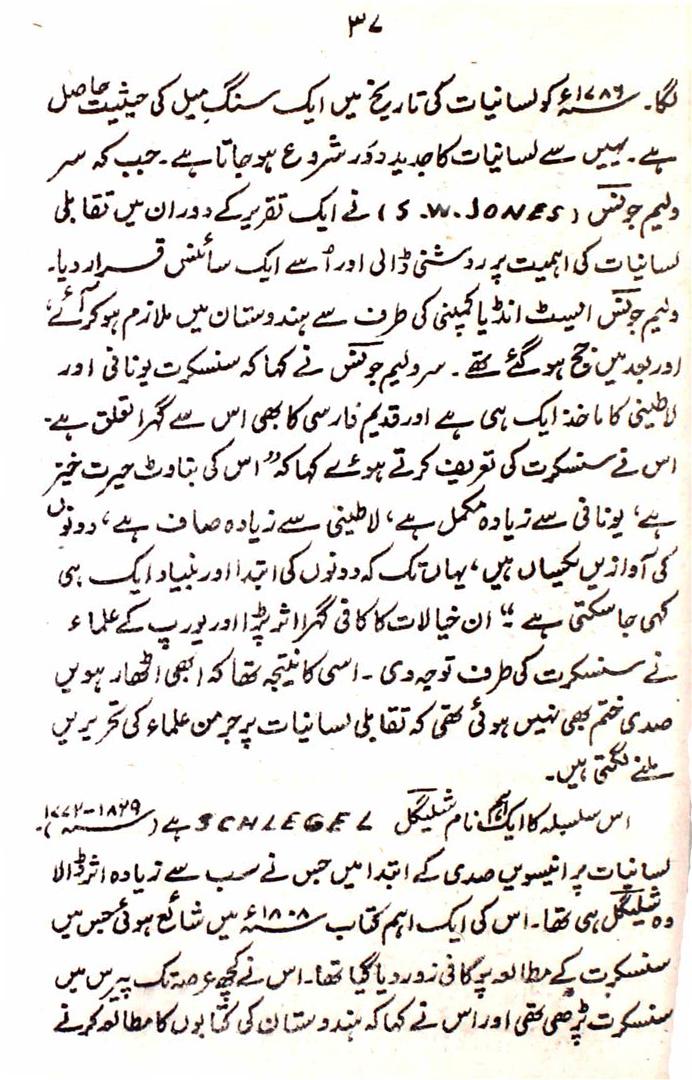 ۳۷
لگا۔ ۱۷۸۶ء کو لسانیات کی تاریخ میں ایک سنگِ میل کی حیثیت حاصل
ہے۔ یہیں سے لسانیات کا جدید دَور شروع ہو جاتا ہے۔ جب کہ سر
ولیم جونس (S.W. JONES) نے ایک تقریر کے دوران میں تقابلی
لسانیات کی اہمیت پر روشنی ڈالی اور اُسے ایک سائنس قرار دیا۔
ولیم جونس ایسٹ انڈیا کمپنی کی طرف سے ہندوستان میں ملازم ہو کر آئے،
اور بعد میں جج ہو گئے تھے۔ سر ولیم جونس نے کہا کہ سنسکرت یونانی اور
لاطینی کا ماخذ ایک ہی ہے اور قدیم فارسی کا بھی اس سے گہرا تعلق ہے۔
اس نے سنسکرت کی تعریف کرتے ہوئے کہا کہ "اس کی بناوٹ حیرت خیز
ہے، یونانی سے زیادہ مکمل ہے، لاطینی سے زیادہ صاف ہے، دونوں
کی آوازیں یکساں ہیں، یہاں تک کہ دونوں کی ابتدا اور بنیاد ایک ہی
کہی جا سکتی ہے۔" ان خیالات کا کافی گہرا اثر پڑا اور یورپ کے علماء
نے سنسکرت کی طرف توجہ دی۔ اسی کا نتیجہ تھا کہ ابھی اٹھارہویں
صدی ختم بھی نہیں ہوئی تھی کہ تقابلی لسانیات پر جرمن علماء کی تحریریں
ملنے لگتی ہیں۔
اس سلسلہ کا ایک اہم نام شلیگل SCHLEGEL ہے (۱۷۷۲–۱۸۲۹ء)۔
لسانیات پر انیسویں صدی کے ابتدا میں جس نے سب سے زیادہ اثر ڈالا
وہ شلیگل ہی تھا۔ اس کی ایک اہم کتاب ۱۸۰۸ء میں شائع ہوئی جس میں
سنسکرت کے مطالعہ پر کافی زور دیا گیا تھا۔ اس نے کچھ عرصہ تک پیرس میں
سنسکرت پڑھی تھی اور اس نے کہا کہ ہندوستان کی کتابوں کا مطالعہ کرنے